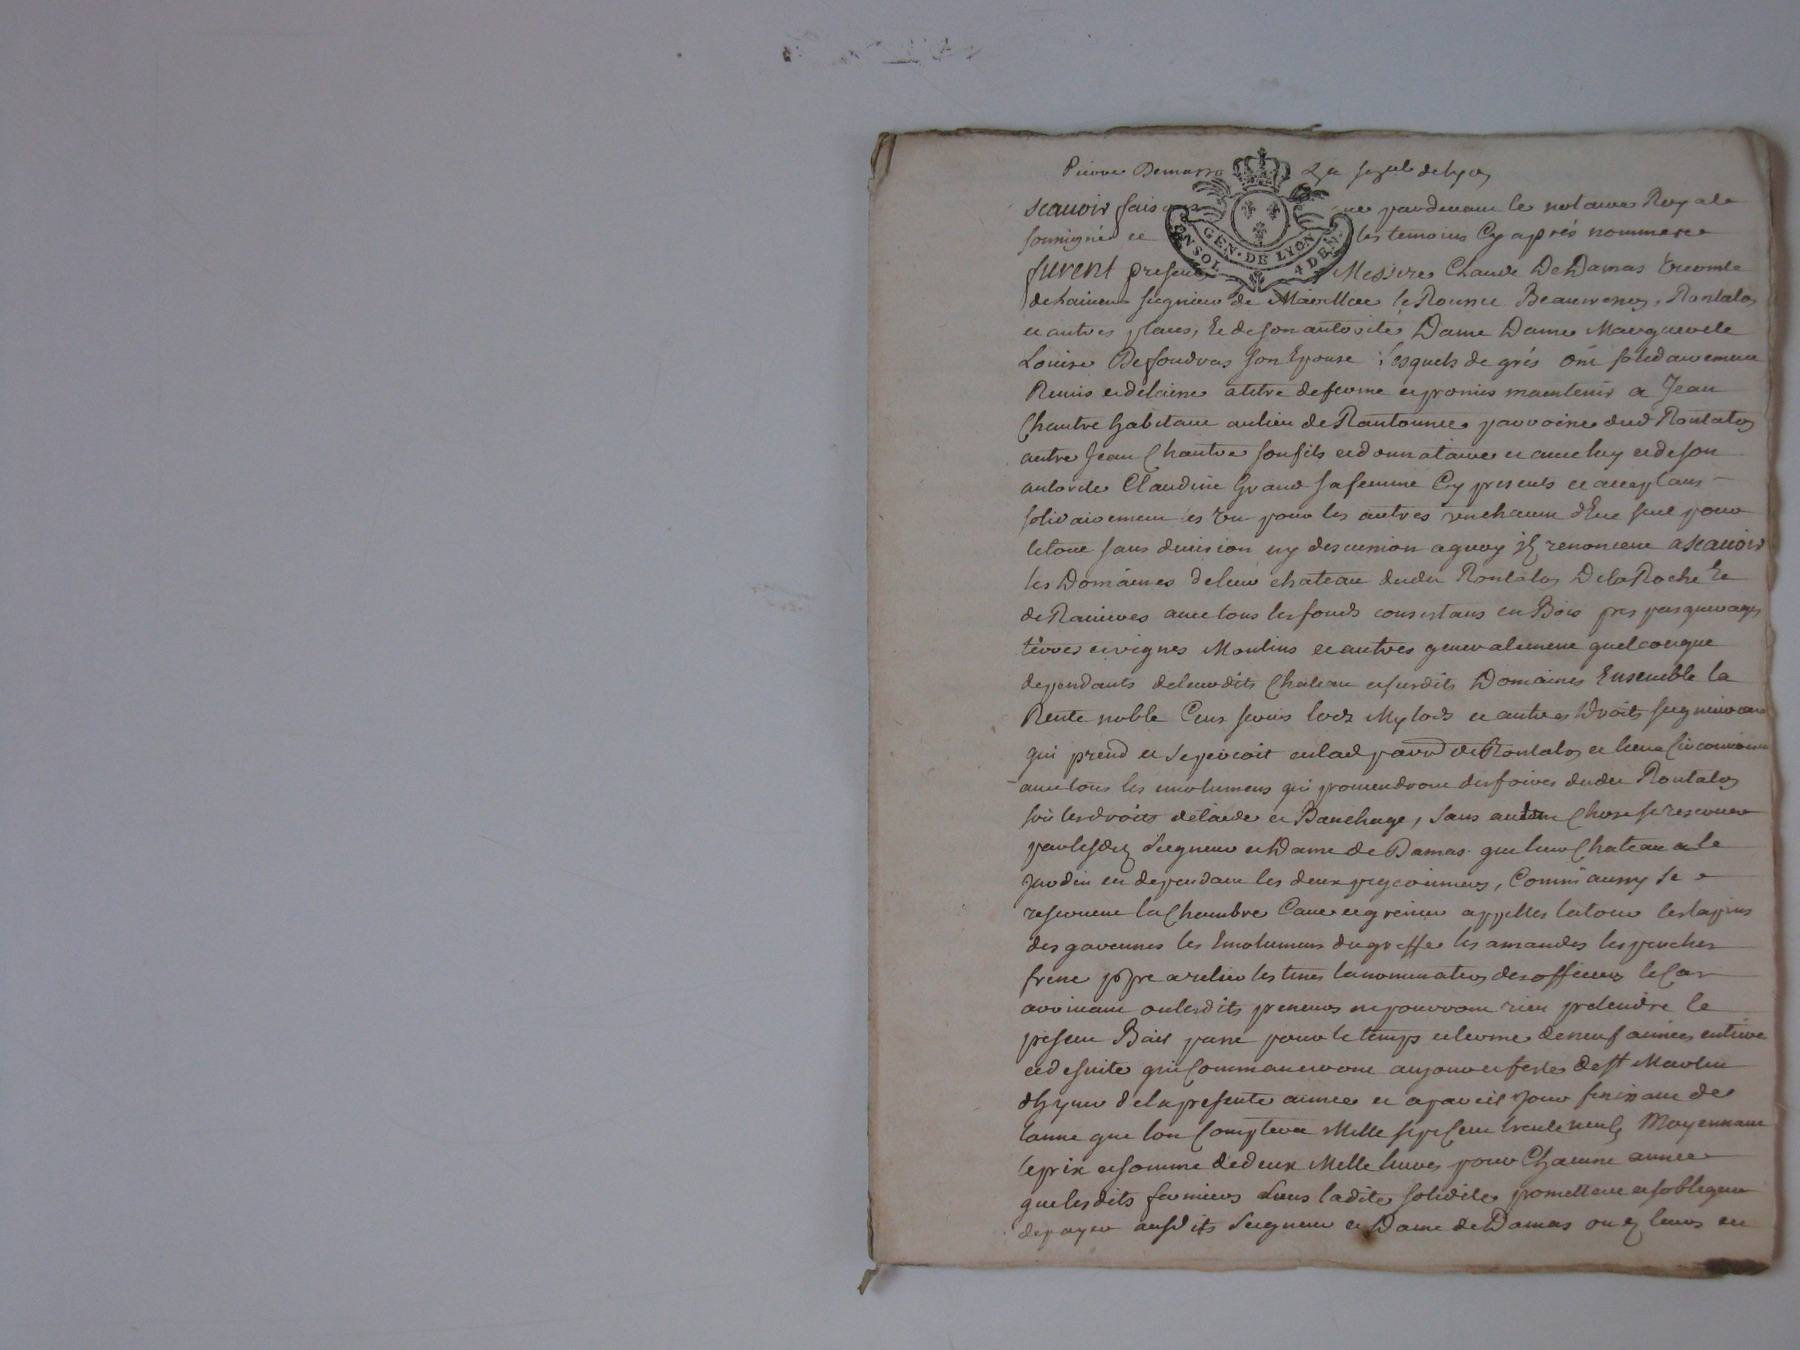 Pierre Demarra
Scauoir fais que pardeuant le notaire Royale
soussigné et les temoins Cy aprés nommes
GEN · DE LYON
4 DEN.
furent presents Messire Claude De Damas Vicomte
seigneur de Marillac le Rousset Beauvernoy, Rontalon
et autres places, Et de son autorité, Dame Dame Marguerite
Louise De foudras son Epouse lesquels de grés ont solidairement
Remis et delaisse a titre de ferme et promis maintenir a Jean
Chantre habitant au lieu de parroisse dud Rontalon
autre Jean Chantre son fils et donnataire et auec luy et de son
autorité Claudine Grand sa femme Cy presents et acceptans
solidairement les vn pour les autres vn chacun d'Eux seul pour
le tout sans diuision ny discussion a quoy ils renoncent a scauoir
les Domaines de leur chateau dudit Rontalon De la Roche Et
de auec tous les fonds consistans en Bois pres pasquerages
terres et vignes Moulins et autres generalement quelconque
dependants de leurdits Chateau et susdits Domaines Ensemble la
Rente noble Cens seruis lods Mylods et autres Droits seigneuriaux
qui prend et se percoit en lad parr de Rontalon et lieux Circonuoisins
auec tous les emolumens qui prouiendront des foires dudit Rontalon
soit les droits de laide et Banchage, sans autre Chose se reseruer
par lesdits Seigneur et Dame de Damas que leur Chateau et le
Jardin en dependant les deux pigeonniers, Comme aussy se
reseruent la Chambre Caue et grenier appellés la tour les lapins
des garennes les Emolumens du greffe les amandes les pesches
la nomination des officiers le Cas
arriuant ou lesdits preneurs ne pourront rien pretendre le
present Bail passé pour le temps et terme de neuf années entiere
et de suite qui Commanceront au jour et feste de St Martin
d'hyuer de la presente annee et a pareil jour finissant de
lanné que lon Comptera Mille sept Cent trente neuf Moyennant
le prix et somme de deux Mille liures pour Chacune année
que lesdits fermiers sous ladite solidité promettent et s'obligent
de payer ausdits Seigneur et Dame de Damas ou es leurs en